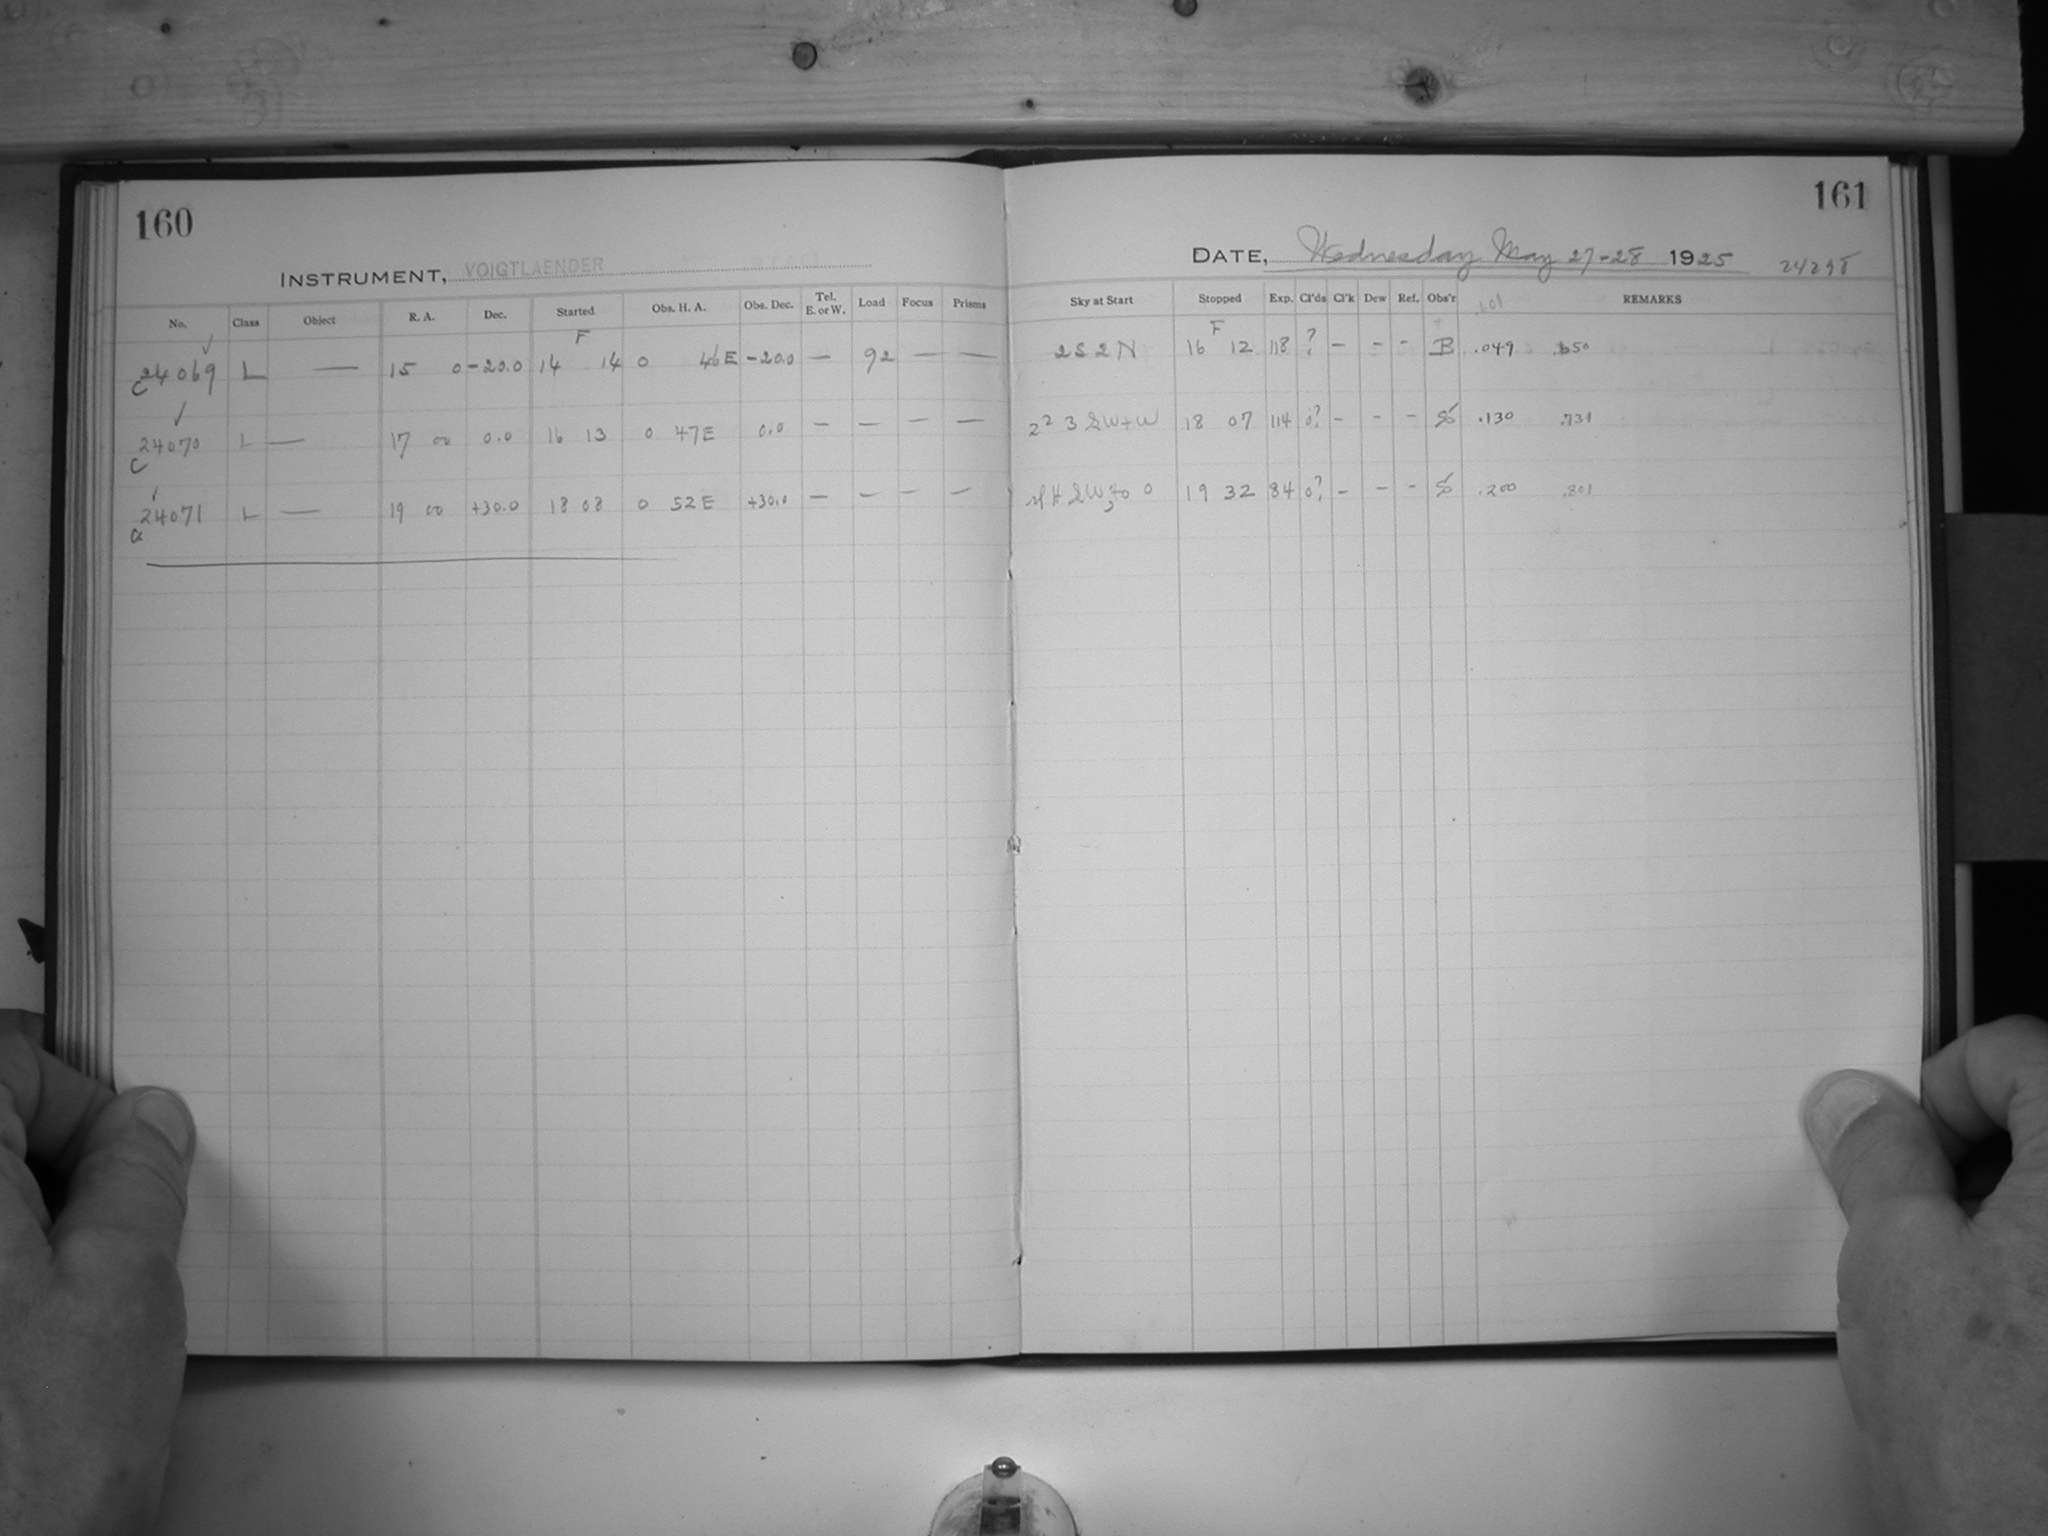 160
INSTRUMENT, VOIGTLAENDER
No. Class Object R. A. Dec. Started Obs. H. A. Obs. Dec. Tel. E. or W. Load Focus Prisms
F
24069 L — 15 0 -20.0 14 14 0 46E -20.0 — 92 — —
C
24070 L — 17 00 0.0 16 13 0 47E 0.0 — — — —
C
24071 L — 19 00 +30.0 18 08 0 52E +30.0 — — — —
a
161
DATE, Wednesday May 27-28 1925
Sky at Start Stopped Exp. Cl'ds Cl'k Dew Ref. Obs'r REMARKS
F
2S 2N 16 12 118 ? — — — B .049 .650
2² 3 SW+W 18 07 114 0? — — — S .130 .731
19 32 84 0? — — — S .200 .801